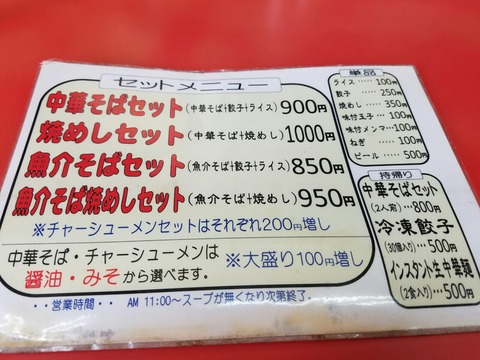 セットメニュー
中華そばセット(中華そば+餃子+ライス)900円
焼めしセット(中華そば+焼めし)1000円
魚介そばセット(魚介そば+餃子+ライス)850円
魚介そば焼めしセット(魚介そば+焼めし)950円
※チャーシューメンセットはそれぞれ200円増し
中華そば・チャーシューメンは
醤油・みそから選べます。
※大盛り100円増し
・・営業時間・・ AM 11:00～スープが無くなり次第終了.
単品
ライス‥‥100円
餃子‥‥‥250円
焼めし‥‥350円
味付玉子‥100円
味付メンマ‥100円
ねぎ‥‥‥100円
ビール‥‥500円
持帰り
中華そばセット
(2人前)…800円
冷凍餃子
(30個入り)…500円
インスタント生中華麺
(2食入り)…500円